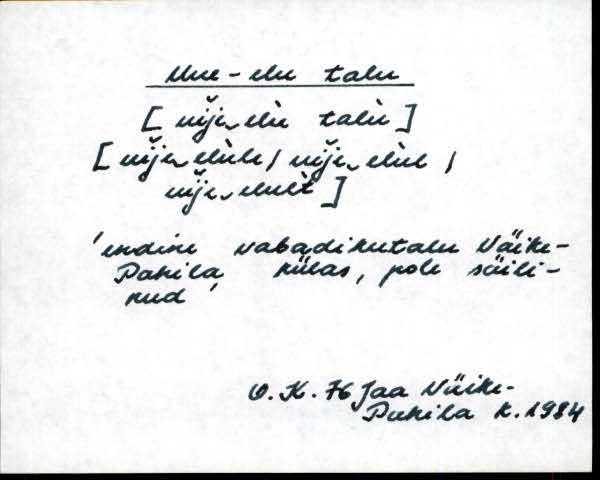 Uue-elu talu
[ uije‿elù talù ]
[ uije‿elùle / uije‿elùl /
uije‿eluèt ]
'endine vabadikutalu Väike-
Pahila külas, pole säili-
nud'
O. K. 76 Jaa Väike-
Pahila k. 1984